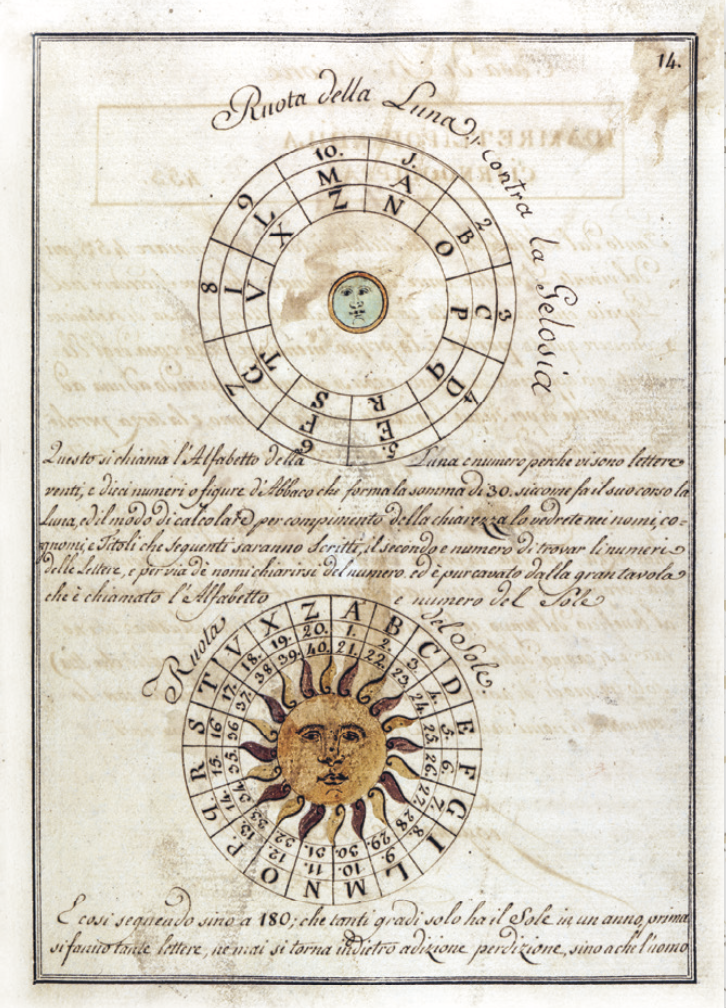 14.
Ruota della Luna, contra la Gelosia
10. 1. 2 3 4 5. 6 7 8 9
M A B C D E F G I L
Z N O P q R S T V X
Questo si chiama l'Alfabetto della Luna e numero perche vi sono lettere
venti, e dieci numeri o figure d'Abbaco che forma la somma di 30. siccome fa il suo corso la
Luna, ed il modo di calcolare per compimento della chiarezza lo vedrete nei nomi, co=
gnomi, e Titoli che seguenti saranno scritti, il secondo e numero di trovar li numeri
delle lettere, e per via de nomi chiarirsi del numero, ed è pur cavato dalla gran tavola
che è chiamato l'Alfabetto e numero del Sole
Ruota del Sole.
A B C D E F G I L M N O P. q. R S T V X Z
1. 2. 3. 4. 5. 6. 7. 8. 9. 10. 11. 12. 13. 14. 15. 16 17. 18. 19. 20.
21. 22. 23. 24. 25. 26. 27. 28. 29. 30. 31. 32. 33. 34. 35. 36 37. 38 39. 40.
E cosi seguendo sino a 180; che tanti gradi solo ha il Sole in un anno, prima
si fanno tante lettere, ne mai si torna indietro adizione perdizione, sino a chi l'uomo